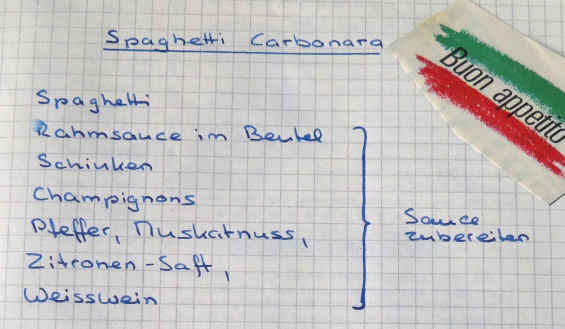 Spaghetti Carbonara
Buon appetito
Spaghetti
Rahmsauce im Beutel
Schinken
Champignons
Pfeffer, Muskatnuss,
Zitronen-Saft,
Weisswein
Sauce
zubereiten